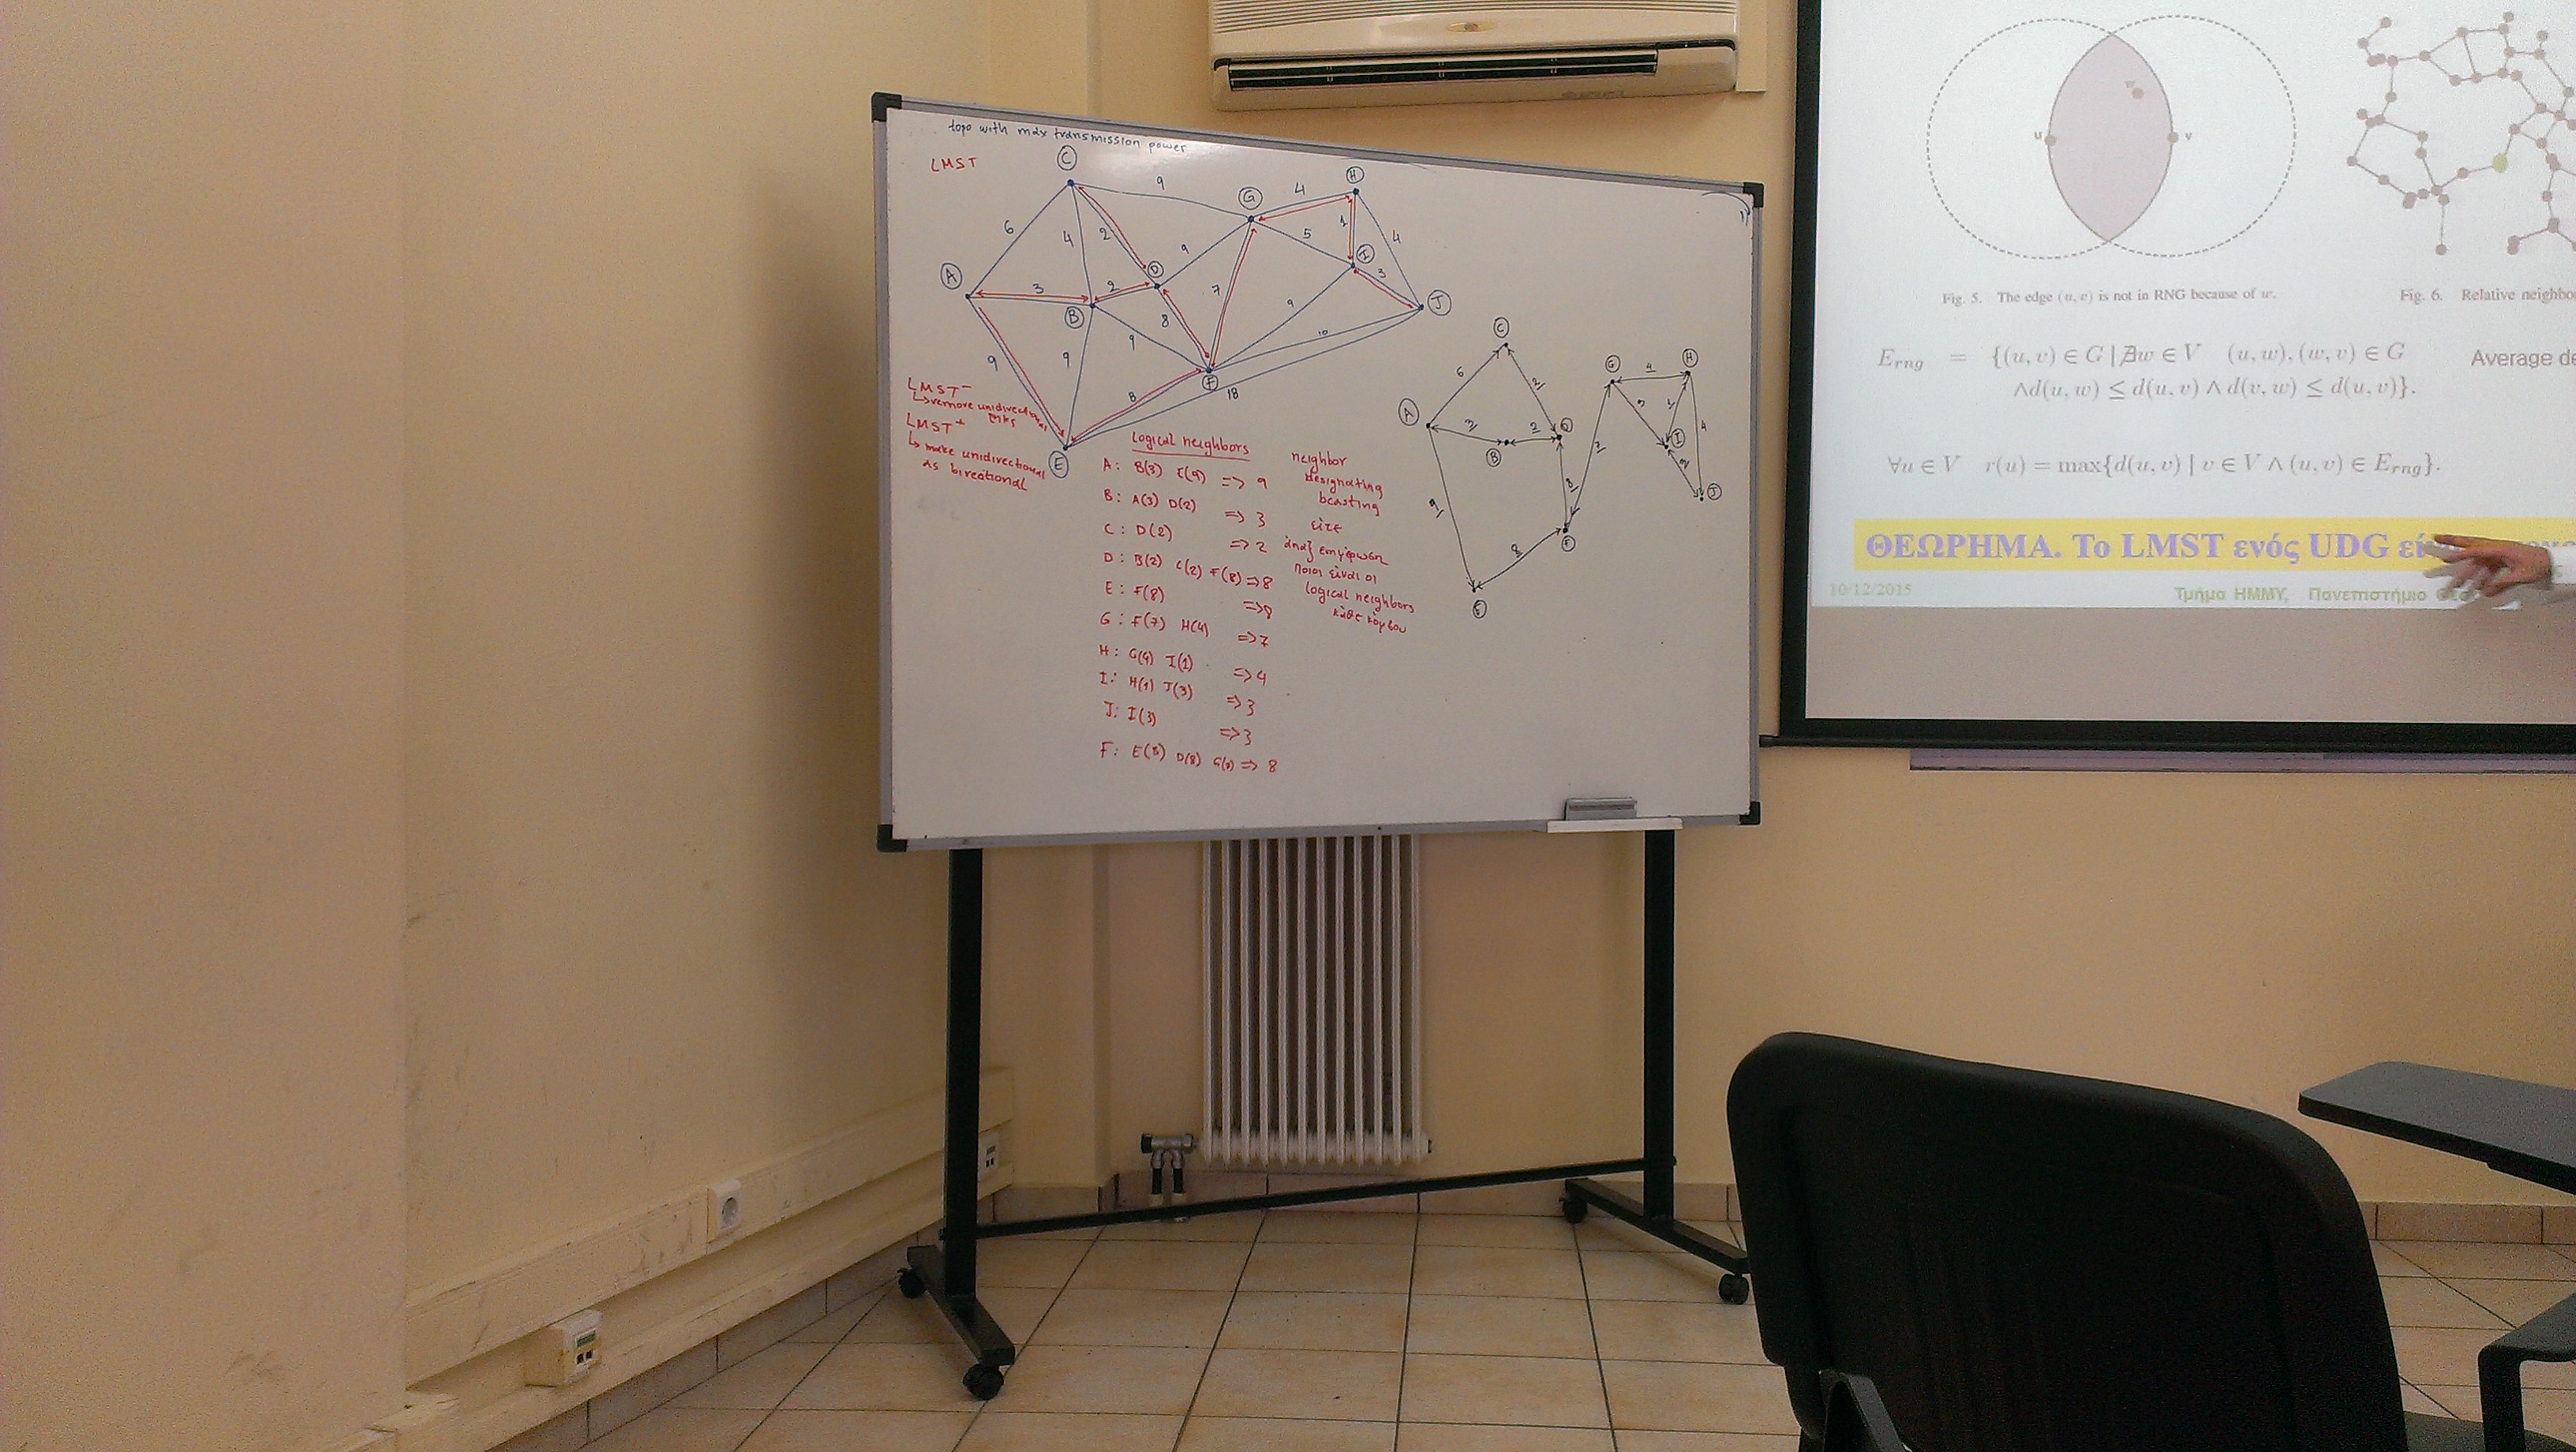 topo with max transmission power
LMST
C
9
G
4
H
6
4
2
9
5
1
4
A
3
2
D
I
3
B
7
J
8
9
10
9
9
9
F
8
18
E
LMST-
↳ remove unidirectional links
LMST+
↳ make unidirectional
as birectional
Logical neighbors
A: B(3) E(9) => 9
B: A(3) D(2) => 3
C: D(2) => 2
D: B(2) C(2) F(8) => 8
E: F(8) =>8
G: F(7) H(4) => 7
H: G(4) I(1) => 4
I: H(1) J(3) => 3
J: I(3) => 3
F: E(8) D(8) G(7) => 8
neighbor
designating
είτε
ποιοι είναι οι
logical neighbors
κάθε κόμβου
C
G
H
6
2
4
A
3
2
D
5
1
4
B
I
3
7
J
9
8
F
8
E
u
w
v
Fig. 5. The edge (u, v) is not in RNG because of w.
Fig. 6. Relative neighbo
E_rng = {(u, v) ∈ G | ∄w ∈ V (u, w), (w, v) ∈ G
∧d(u, w) ≤ d(u, v) ∧ d(v, w) ≤ d(u, v)}.
Average de
∀u ∈ V r(u) = max{d(u, v) | v ∈ V ∧ (u, v) ∈ E_rng}.
ΘΕΩΡΗΜΑ. Το LMST ενός UDG
10/12/2015
Τμήμα ΗΜΜΥ, Πανεπιστήμιο